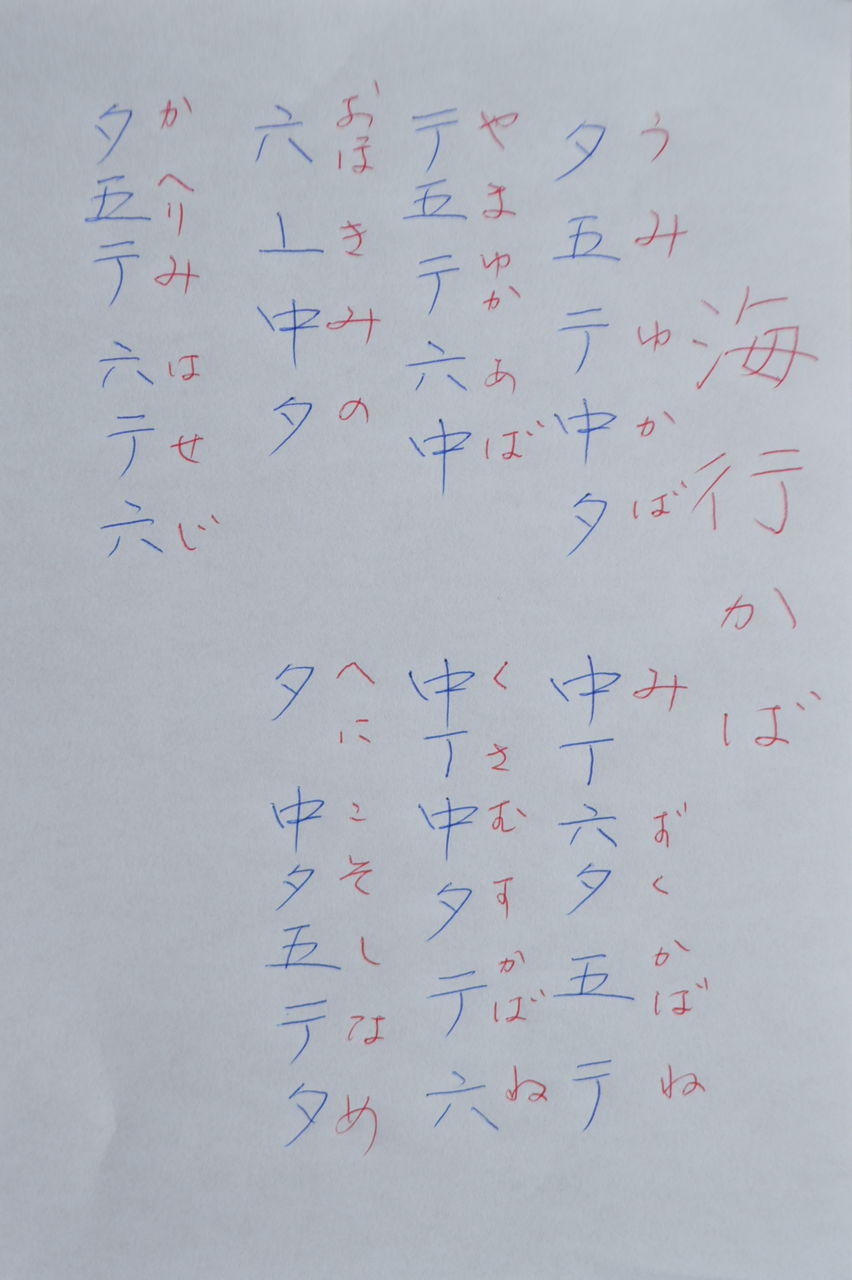 海行かば
うみゆかば
夕五テ中夕
みずくかばね
中丁六夕五テ
やまゆかあば
テ五テ六中
くさむすかばね
中丁中夕テ六
おほきみの
六丄中夕
へにこそしなめ
夕中夕五テ夕
かへりみはせじ
夕五テ六テ六